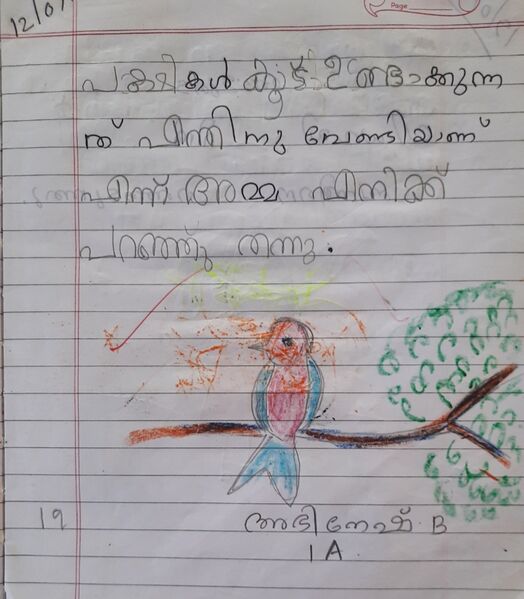 12/0
Page
പക്ഷികൾ കൂട് ഉണ്ടാക്കുന്ന
ത് എന്തിനു വേണ്ടിയാണ്
എന്ന് അമ്മ എനിക്ക്
പറഞ്ഞു തന്നു.
19
അഭിനവ് B
1 A